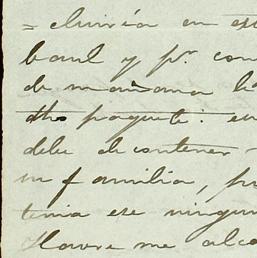 =cluiría en es
baul y pr. con
de mañana la
dho paquete. en
debe de contener
mi familia, pu
tenia ese ningun
Havre me alca